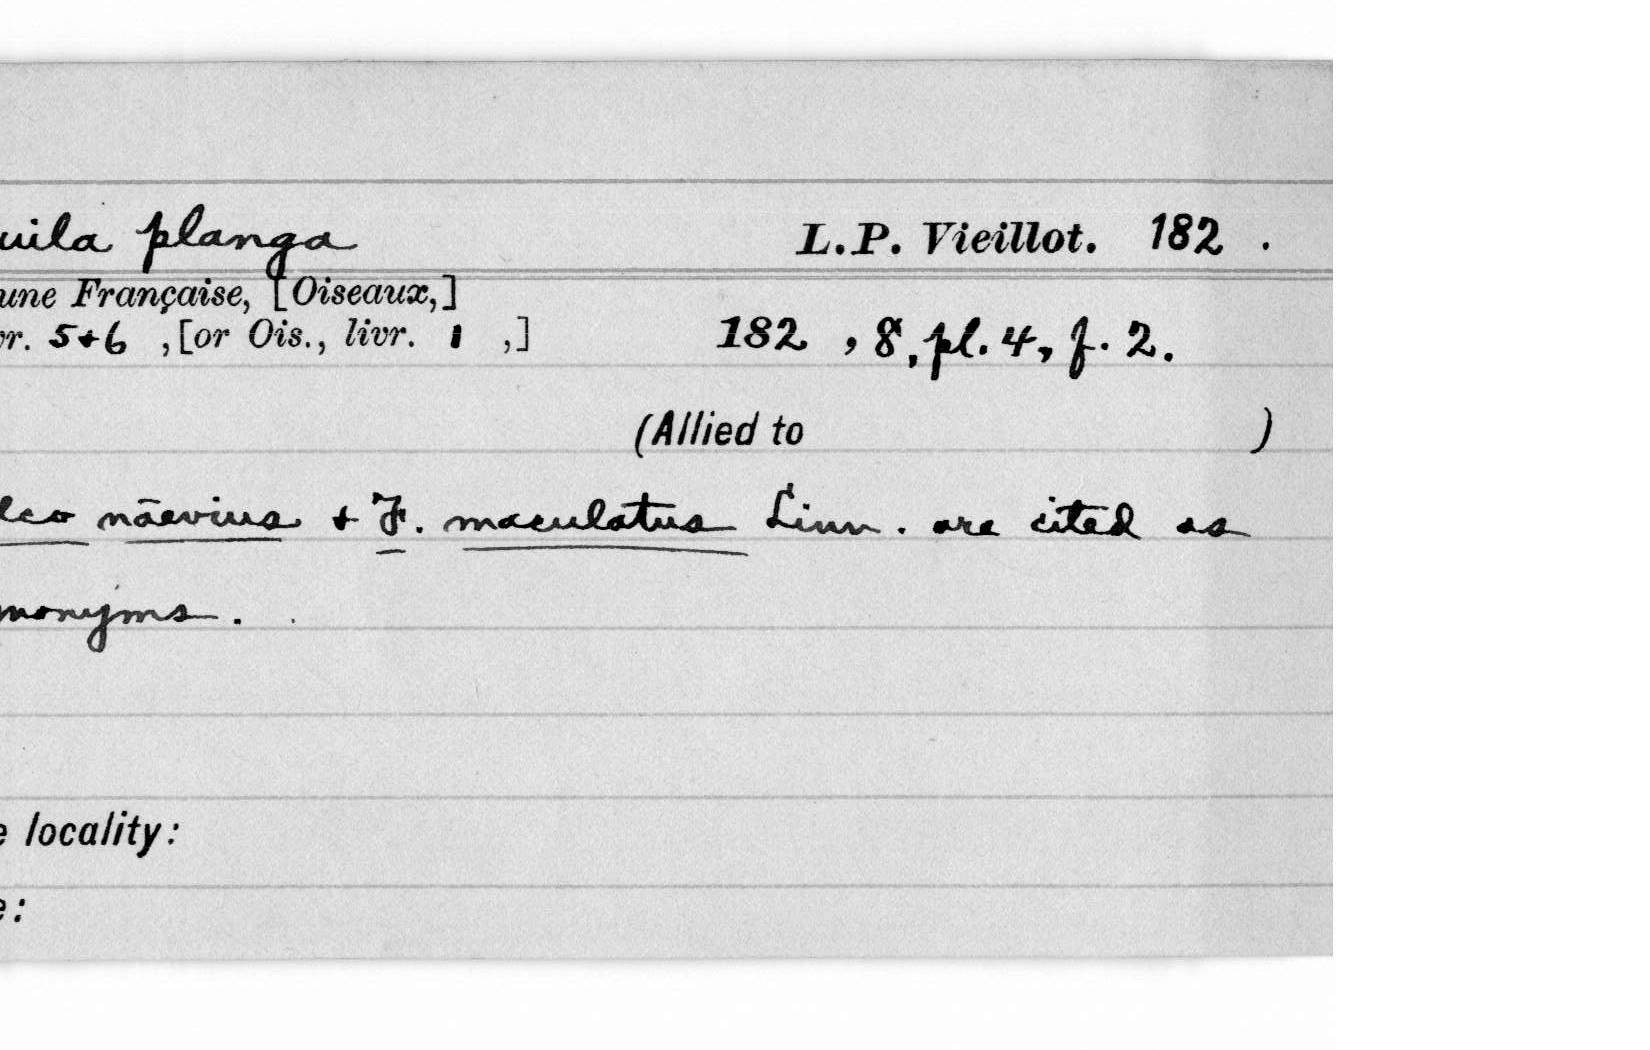 uila planga L.P. Vieillot. 182 .
une Française, [Oiseaux,]
vr. 5+6 ,[or Ois., livr. 1 ,] 182 , 8, pl. 4, f. 2.
(Allied to )
lco nāevius + F. maculatus Linn. are cited as
nonyms. .
e locality:
e: